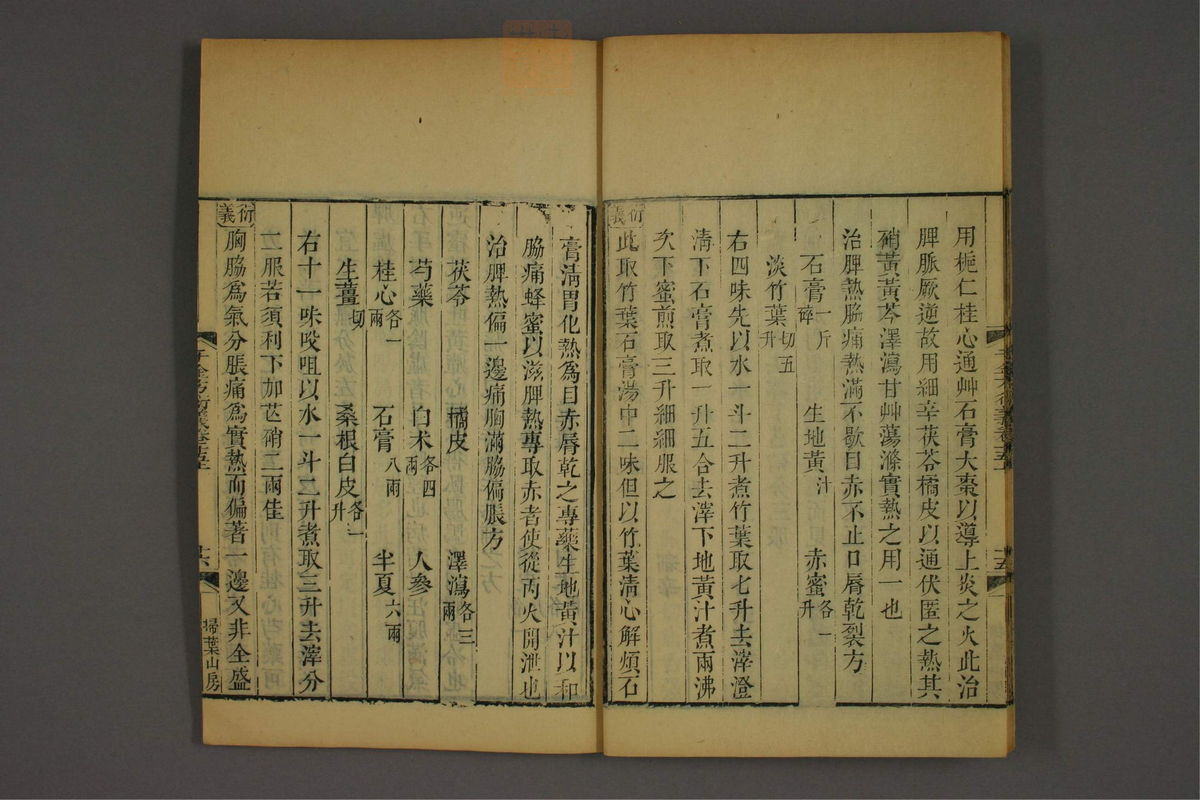 用梔仁桂心通艸石膏大棗以導上炎之火此治
脾脈厥逆故用細辛茯苓橘皮以通伏匿之熱其
硝黃黃芩澤瀉甘艸蕩滌實熱之用一也
治脾熱脇痛熱滿不歇目赤不止口唇乾裂方
石膏一斤碎 生地黃汁 赤蜜各一升
淡竹葉切五升
右四味先以水一斗二升煮竹葉取七升去滓澄
清下石膏煮取一升五合去滓下地黃汁煮兩沸
次下蜜煎取三升細細服之
衍義
此取竹葉石膏湯中二味但以竹葉清心解煩石
膏清胃化熱為目赤唇乾之專藥生地黃汁以和
脇痛蜂蜜以滋脾熱專取赤者使從丙火開泄也
治脾熱偏一邊痛胸滿脇偏脹方
茯苓 橘皮 澤瀉各三兩
芍藥 白朮各四兩 人參
桂心各一兩 石膏八兩 半夏六兩
生薑切 桑根白皮各一升
右十一味㕮咀以水一斗二升煮取三升去滓分
三服若須利下加芒硝二兩佳
衍義
胸脇為氣分脹痛為實熱而偏著一邊又非全盛
掃葉山房